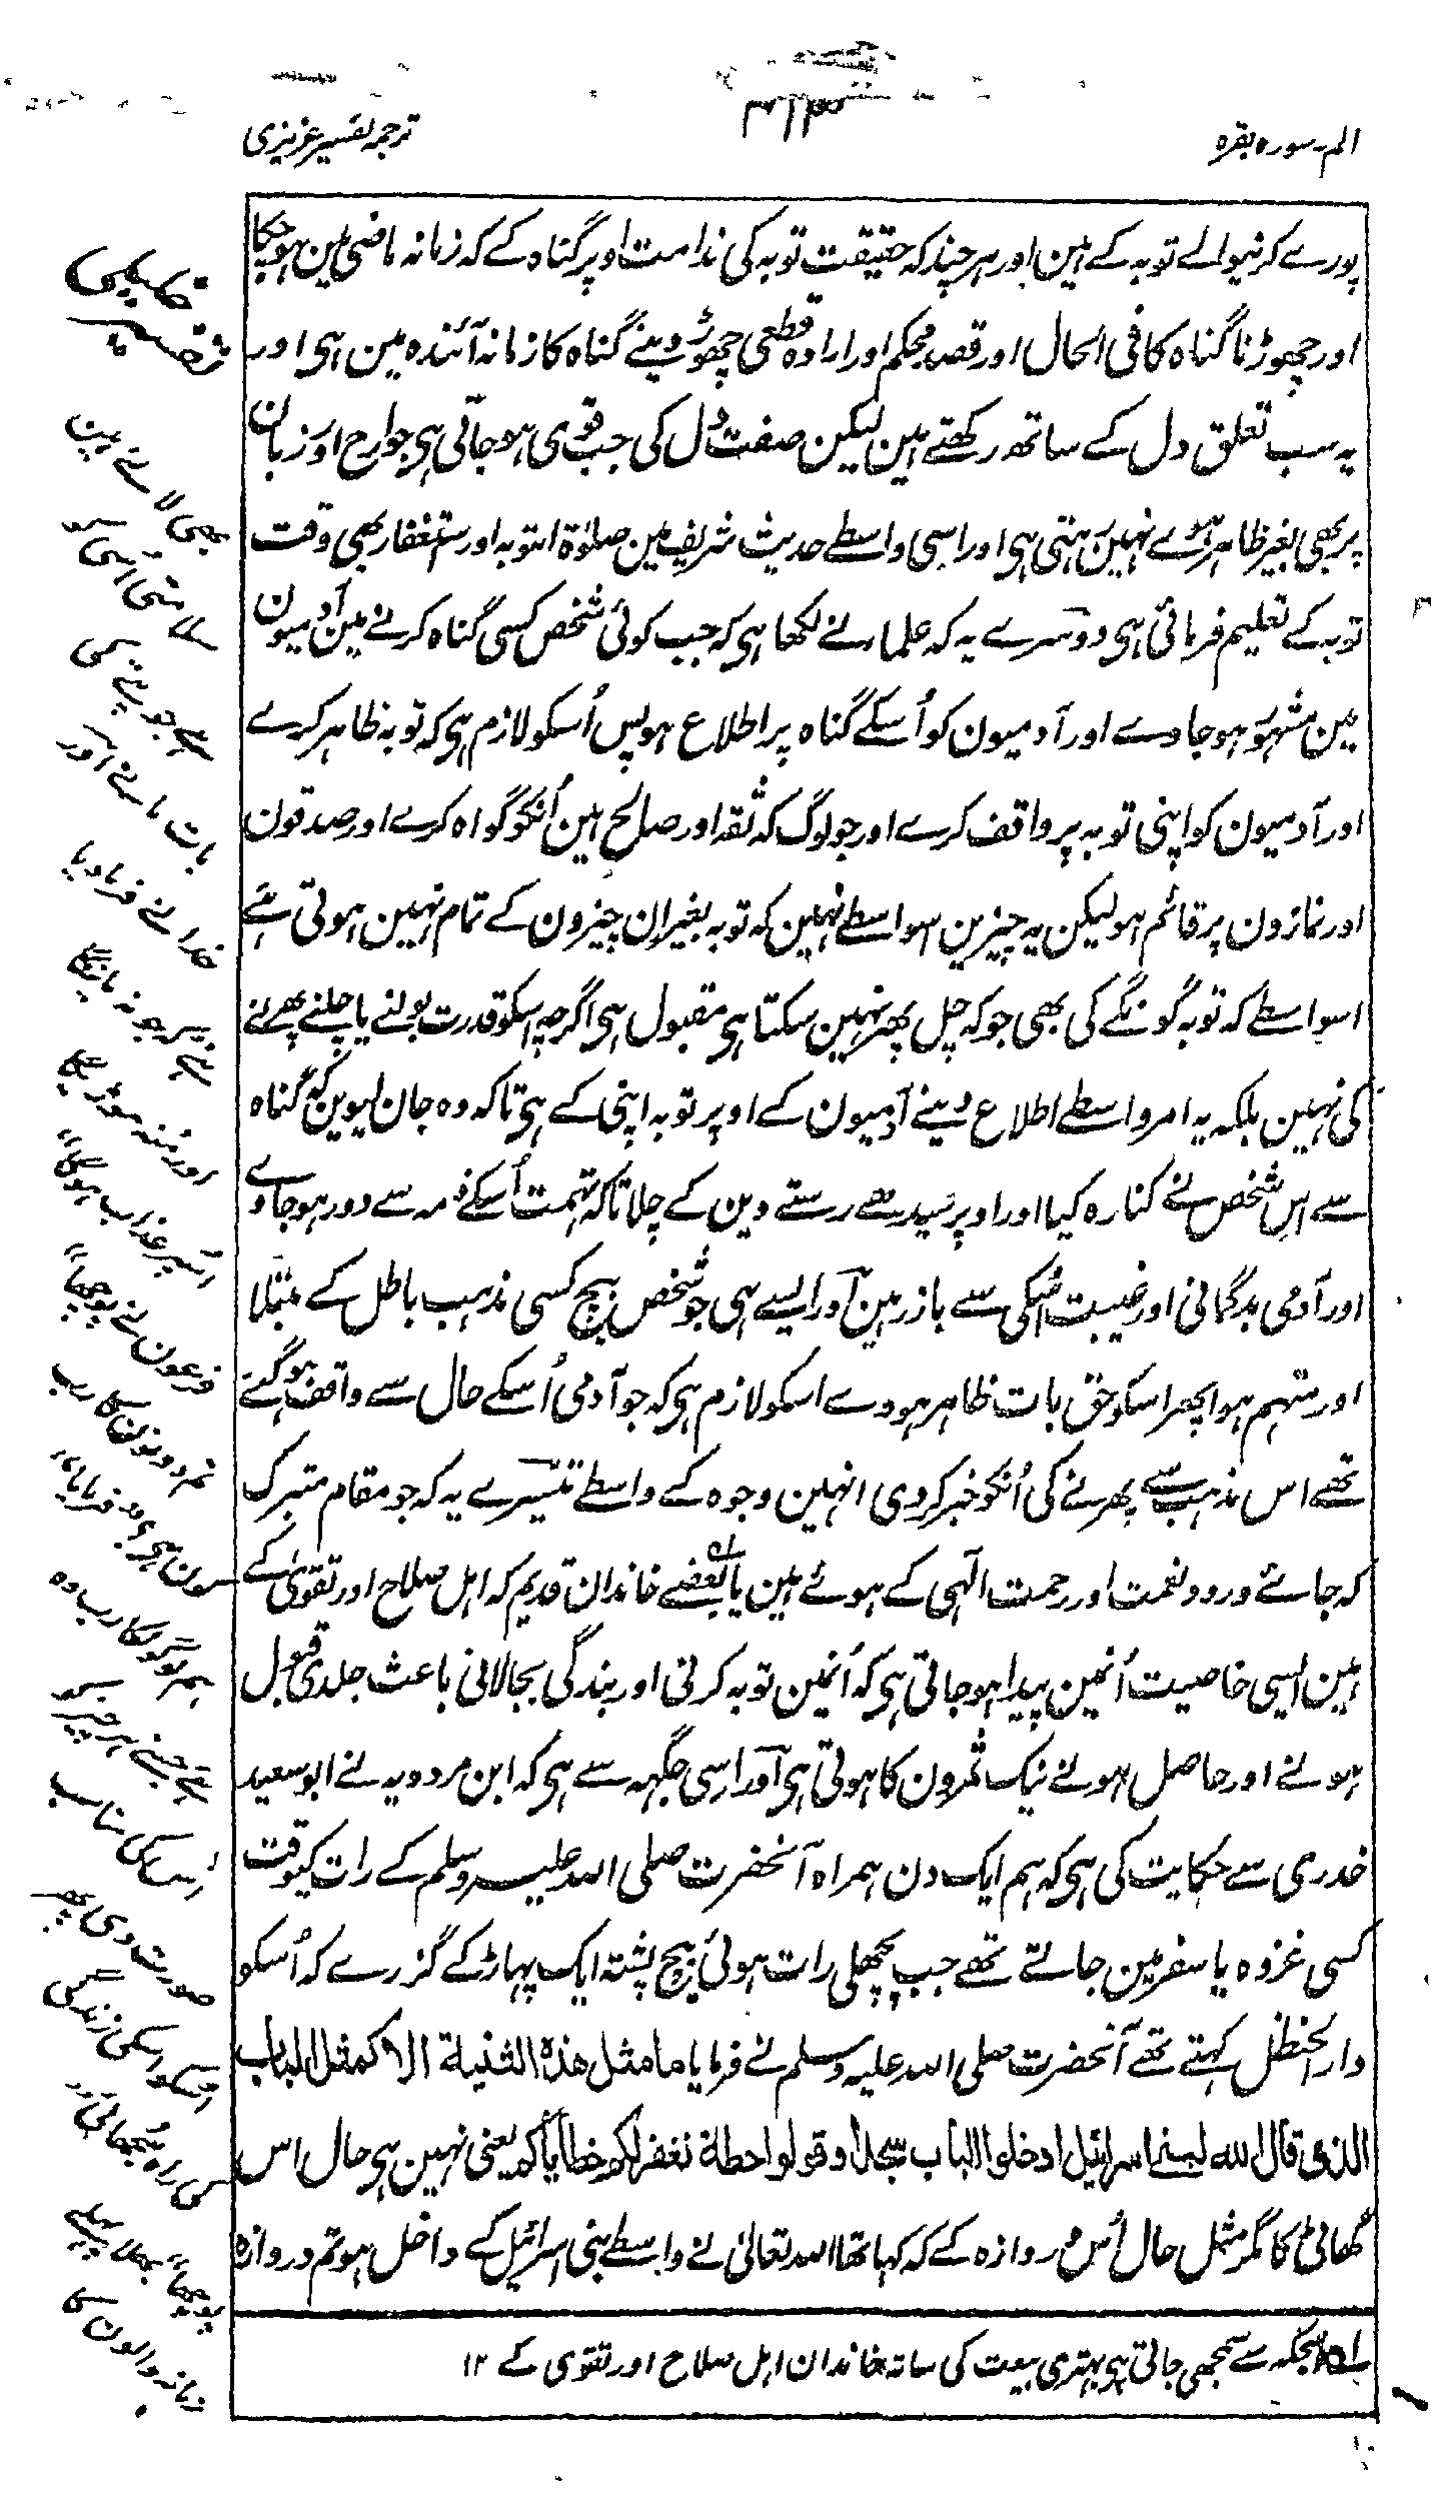 الم۔سورہ بقرہ
۳۱۳
ترجمہ تفسیر عزیزی
پورے کرنیوالے توبہ کے ہین اور ہر چند کہ حقیقت توبہ کی ندامت اوپر گناہ کے کہ زمانہ ماضی مین ہو چکا
اور چھوڑنا گناہ کا فی الحال اور قصد محکم اور ارادہ قطعی چھوڑ دینے گناہ کا زمانہ آئندہ مین ہی اور
یہ سب تعلق دل کے ساتھ رکھتے ہین لیکن صفت دل کی جب قوی ہو جاتی ہی جوارح اور زبان
پر بھی بغیر ظاہر ہوئے نہین رہتی ہی اور اسی واسطے حدیث شریف مین صلوٰۃ التوبہ اور ستغفار بھی وقت
توبہ کے تعلیم فرمائی ہی دوسرے یہ کہ علمار نے لکھا ہی کہ جب کوئی شخص کسی گناہ کرنے مین آدمیون
مین مشہور ہو جاوے اور آدمیون کو اُسکے گناہ پر اطلاع ہو پس اُسکو لازم ہی کہ توبہ ظاہر کرے
اور آدمیون کو اپنی توبہ پر واقف کرے اور جو لوگ کہ ثقہ اور صالح ہین اُنکو گواہ کرے اور صدقون
اور نمازون پر قائم ہو لیکن یہ چیزین اسواسطے نہین کہ توبہ بغیر ان چیزون کے تمام نہین ہوتی ہے
اسواسطے کہ توبہ گونگے کی بھی جو کہ چل پھر نہین سکتا ہی مقبول ہی اگرچہ اسکو قدرت بولنے یا چلنے پھرنے
کی نہین بلکہ یہ امر واسطے اطلاع دینے آدمیون کے اوپر توبہ اپنی کے ہی تاکہ وہ جان لیوین کہ گناہ
سے اِس شخص نے کنارہ کیا اور اوپر سیدھے رستے دین کے چلا تاکہ تہمت اُسکے ذمہ سے دور ہو جاوے
اور آدمی بدگمانی اور غیبت اُسکی سے باز رہین اور ایسے ہی جو شخص بیچ کسی مذہب باطل کے مبتلا
اور متہم ہوا پھر اسکو حق بات ظاہر ہووے اسکو لازم ہی کہ جو آدمی اُسکے حال سے واقف ہو گئے
تھے اس مذہب سے پھرنے کی اُنکو خبر کردی انہین وجوہ کے واسطے تیسرے یہ کہ جو مقام متبرک
کہ جائے ورود نعمت اور رحمت الٰہی کے ہوئے ہین یا بعضے خاندان قدیم کہ اہل صلاح اور تقویٰ کے
ہین ایسی خاصیت اُنمین پیدا ہو جاتی ہی کہ اُنمین توبہ کرنی اور بندگی بجالانی باعث جلدی قبول
ہونے اور حاصل ہونے نیک ثمرون کا ہوتی ہی اور اِسی جگہہ سے ہی کہ ابن مردویہ نے ابو سعید
خدری سے حکایت کی ہی کہ ہم ایک دن ہمراہ آنحضرت صلی اللہ علیہ وسلم کے رات کیوقت
کسی غزوہ یا سفر مین جاتے تھے جب پچھلی رات ہوئی بیچ پشتہ ایک پہاڑ کے گزرے کہ اُسکو
دار الحنظل کہتے تھے آنحضرت صلی اللہ علیہ وسلم نے فرمایا ما مثل ھذہ الثنیۃ الا کمثل الباب
الذی قال للہ لبنی اسرائیل ادخلوا الباب سجدا وقولوا حطۃ نغفر لکم خطایاکم یعنی نہین ہی حال اس
گھاٹی کا مگر مثل حال اُس دروازہ کے کہ کہا تھا اللہ تعالیٰ نے واسطے بنی اسرائیل کے داخل ہو تم دروازہ
اسجگہ سے سمجھی جاتی ہی بہتری بیعت کی ساتہ خاندان اہل صلاح اور تقوی کے ۱۲
بات مانے اور
خدا نے فرمادیا
ہے کہ جو نہ مانیگا
اور منہ موڑیگا
اسپر عذاب ہوگا
فرعون نے پوچھا
تم دونون کا رب
کون ہی؟ فرمایا
ہم لوگونکا رب وہ
ہے جسنے ہر چیز کو
اُسکی مناسب
صورت دی پھر
اسکو اسکی زندگی
کی راہ سُجھائی اور
پوچھا بھلا پہلے
زمانہ والون کا